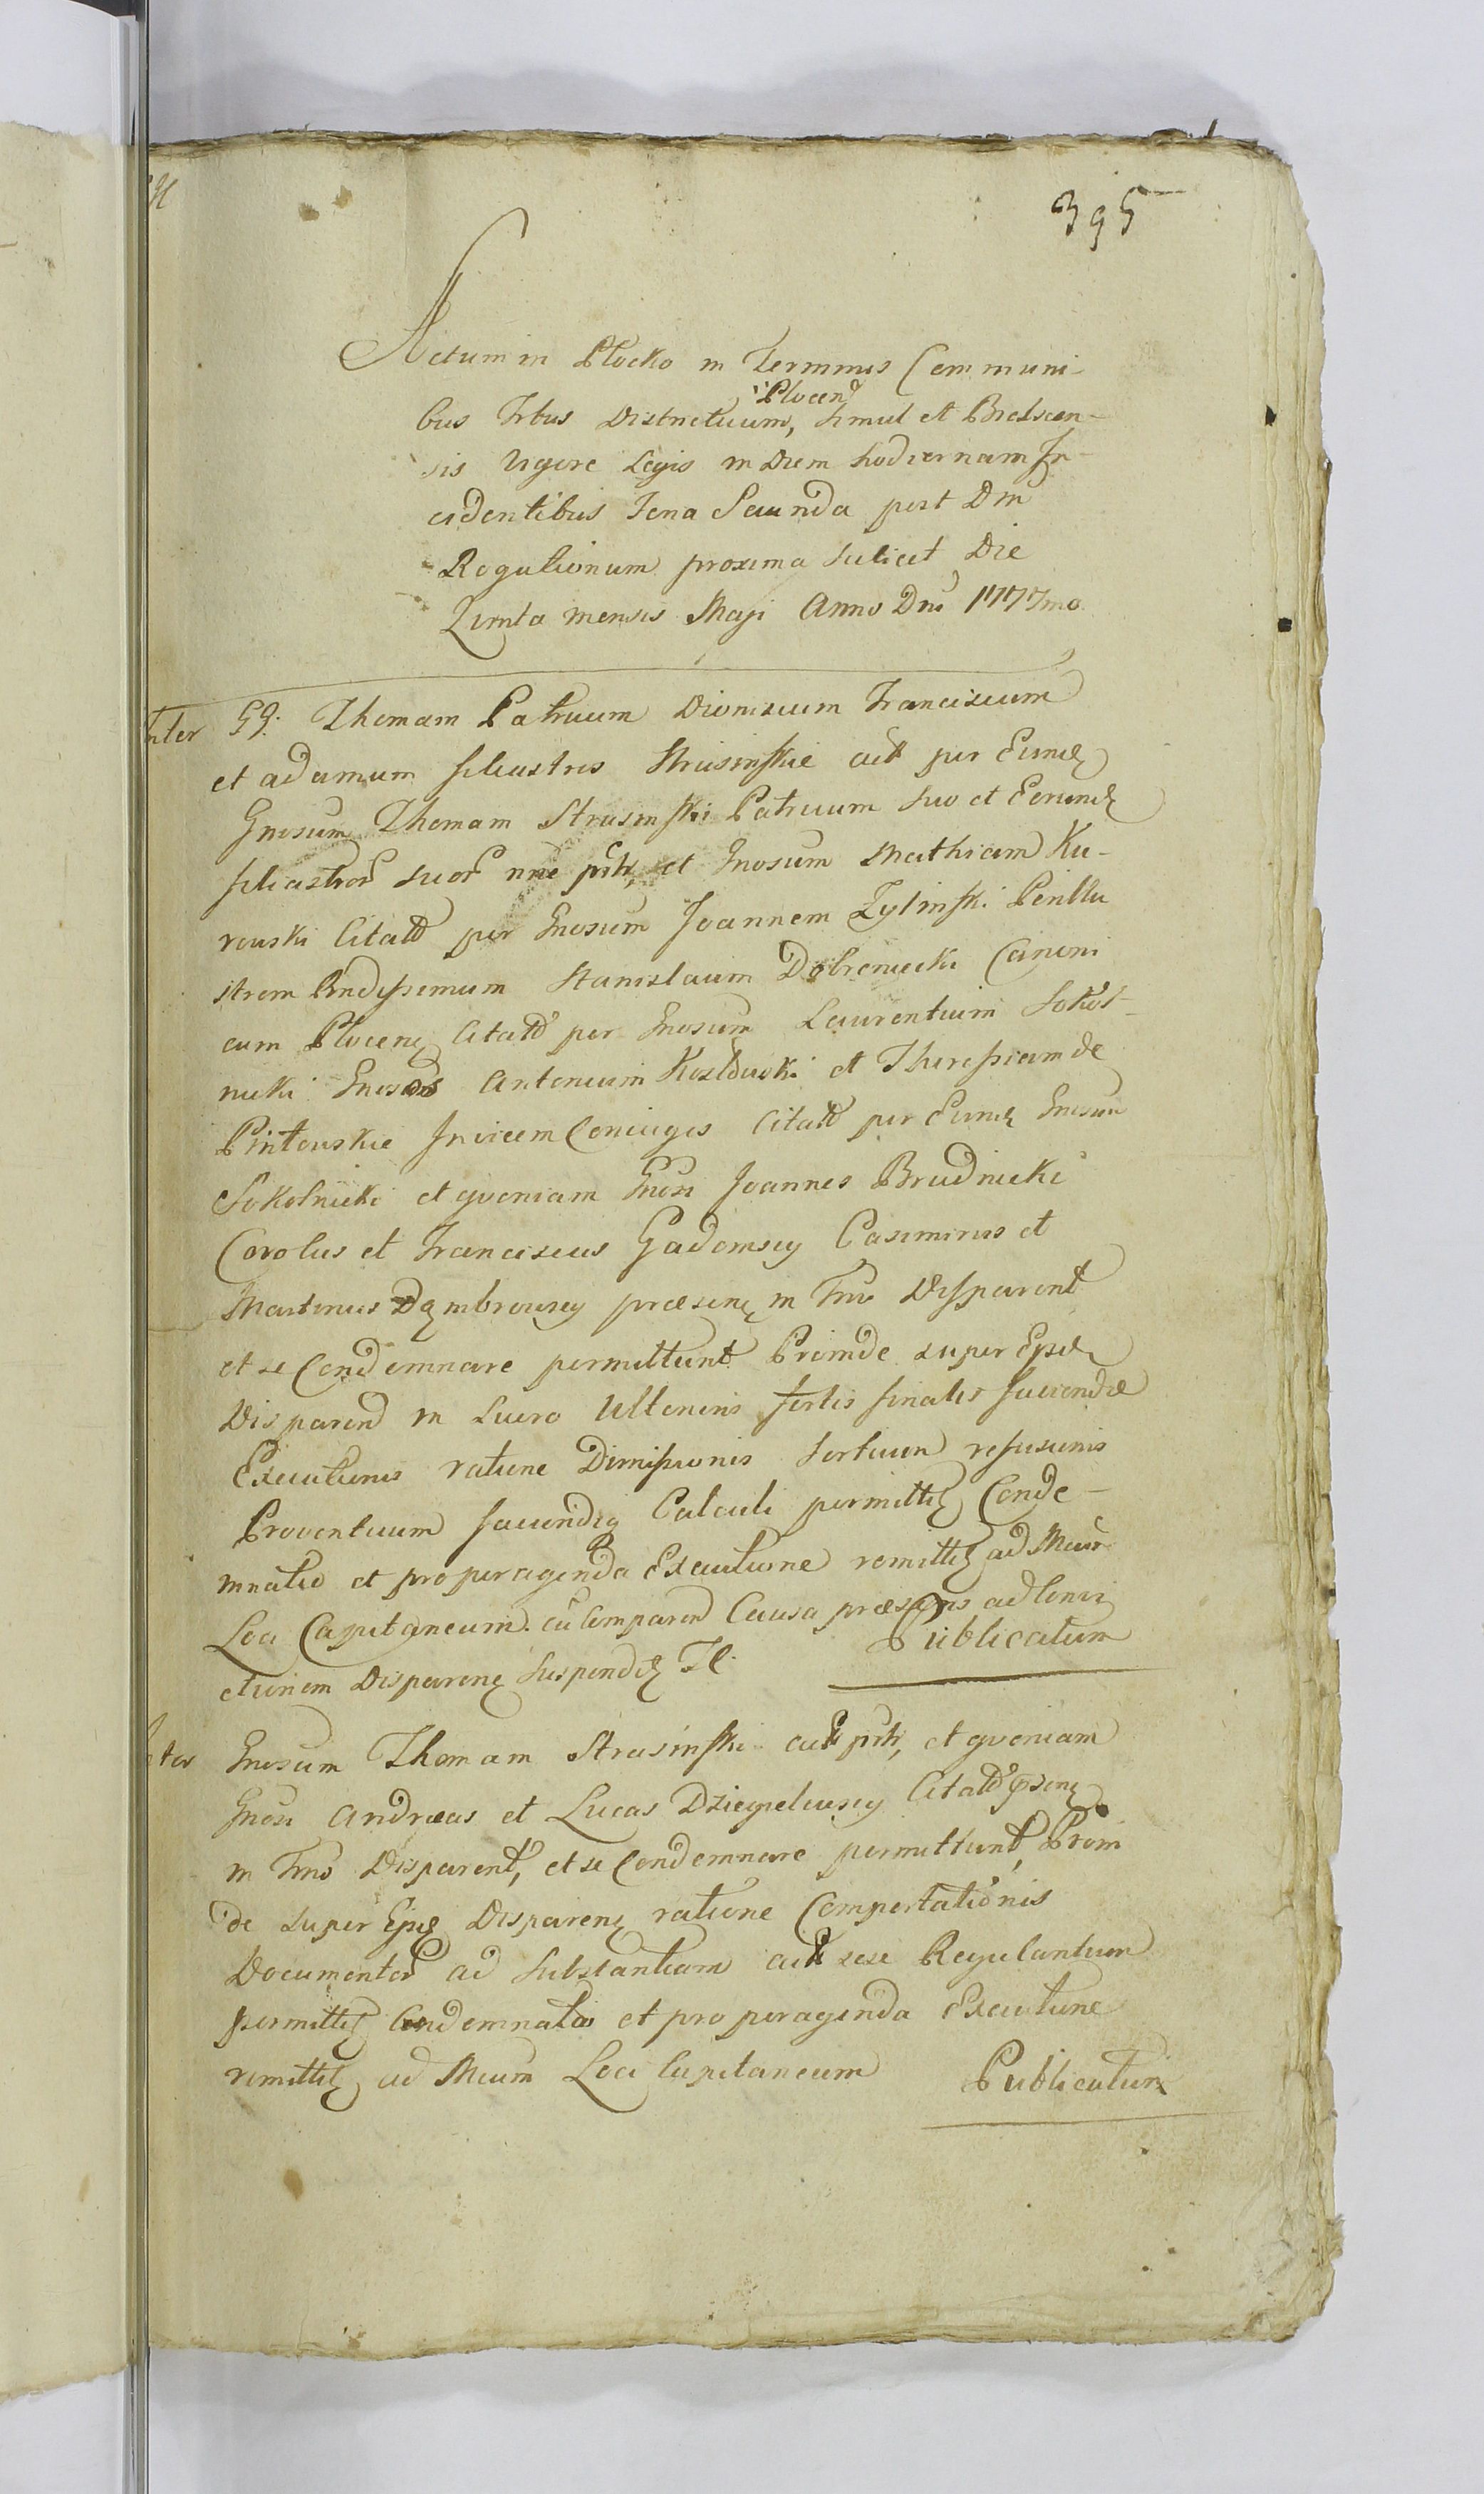 395
Actum in Plocko in Terminis Communi-
bus Trbus Districtuum, Simul et Bielscen-
Plocen
sis Vigore Legis in Diem hodiernam In-
cidentibus Feria Secunda post Dm
Rogationum proxima Scilicet Die
Quinta mensis Maji Anno Dni 1777mo
Inter GG. Thomam Patruum Dionisium Franciscum
et Adamum filiastres Strusinskie per
Gnosum Thomam Strusinski Patruum suo et
filiastror suor nne et Gnosum Mathiam Ku-
rowski Citatt per Gnosum Joannem Zylinski Perillu
strem Rndissimum Stanislaum Dobreniecki Canoni
cum Plocens Citatt per Gnosum Laurentium Sokol-
nicki Gnosos Antonium Kozlowski et Theressiam de
Pintowskie Invicem Coniuges Citatt per Gnosum
Sokolnicki et qvoniam Gnosi Joannes Brudnicki
Carolus et Franciscus Gadomscy Casimirus et
Martinus Dąmbrowscy præsens in Trno Disparent
et se Condemnare permittunt Proinde super
Disparend in Lucro Ulterioris finalis faciendæ
Executionis ratione Dimissionis Sortium refusionis
Proventuum faciendiq Calculi permittit Conde-
mnatio et pro peragenda Executione remittit ad
Loci Capitaneum. cū Comparend Causa præsens ad
ctionem Disparens Suspendit Publicatum
Inter Gnosum Thomam Strusinski et qvoniam
Gnosi Andreas et Lucas Dziegielewscy Citatt
in Trno Disparent, et se Condemnare permittunt, Proin
de super Disparens ratione Comportationis
Documentor ad Substantiam sese Regulantium
permittit Condemnatio et pro peragenda Executione
remittit ad Loci Capitaneum Publicatum